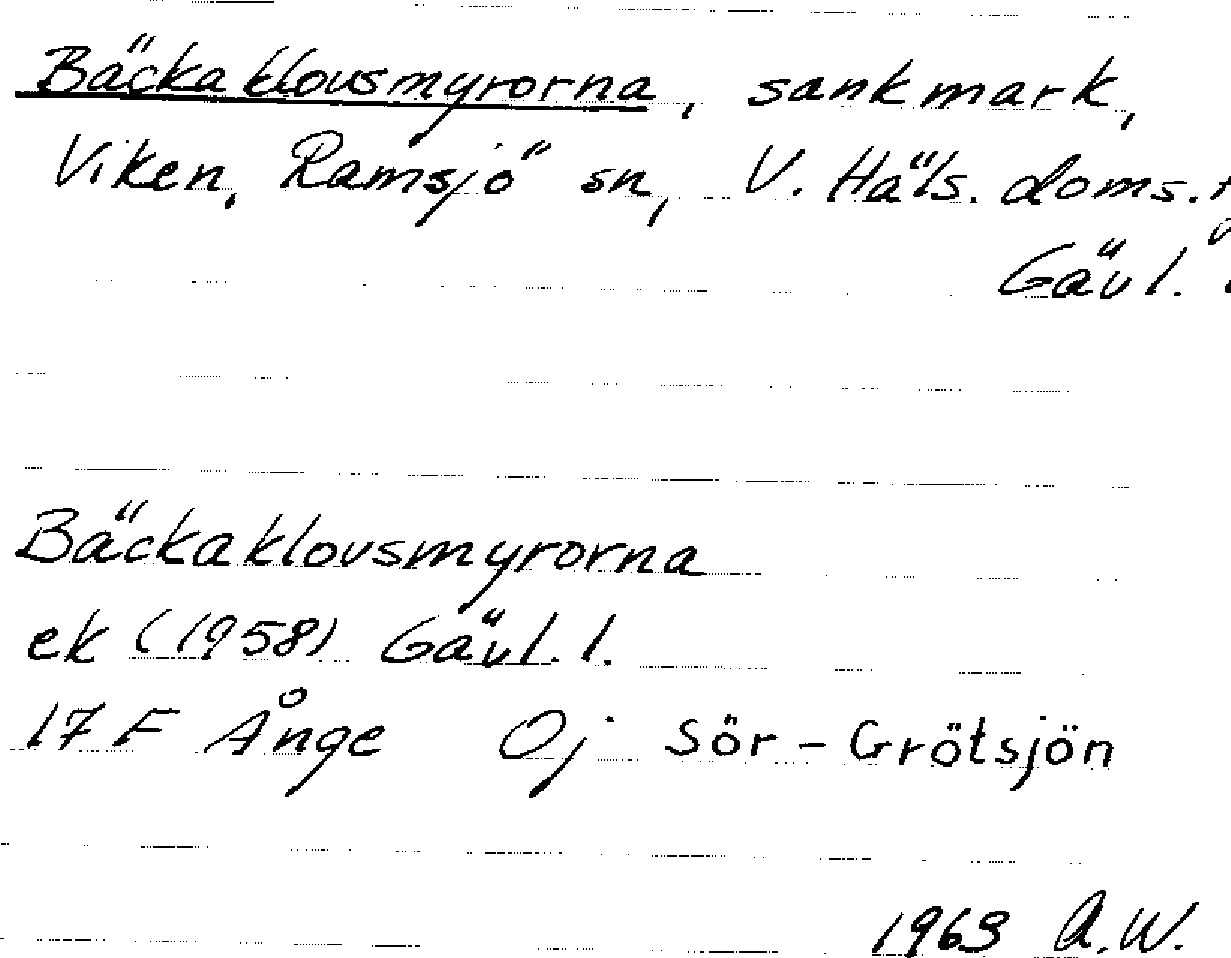 Bäckaklovsmyrorna, sankmark,
Viken, Ramsjö sn, V. Häls. doms.
Gävl.
Bäckaklovsmyrorna
ek (1958) Gävl. l.
17 F Ånge Oj Sör-Grötsjön
1963 A.W.